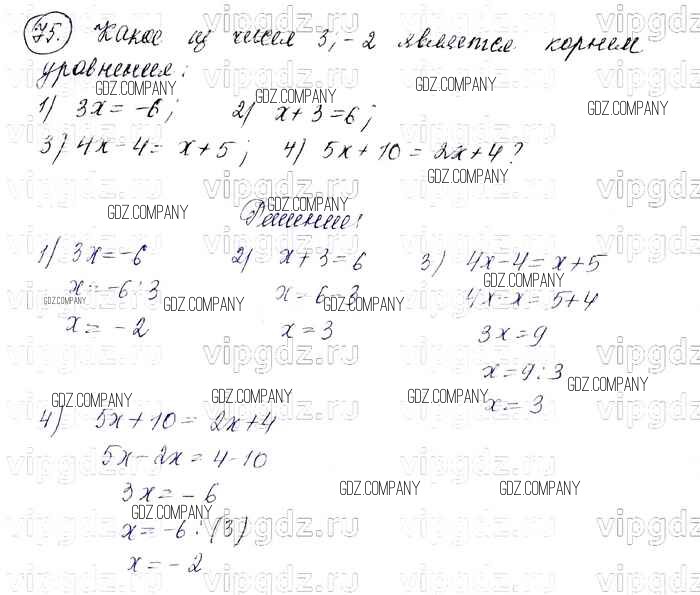 75. Какое из чисел 3; -2 является корнем
уравнения:
1) 3x = -6; 2) x+3=6;
3) 4x-4= x+5; 4) 5x+10 = 2x+4?
Решение:
1) 3x=-6
x=-6:3
x = -2
2) x+3=6
x=6-3
x=3
3) 4x-4=x+5
4x-x=5+4
3x=9
x=9:3
x=3
4) 5x+10= 2x+4
5x-2x=4-10
3x=-6
x=-6:(3)
x=-2
GDZ.COMPANY
vipgdz.ru